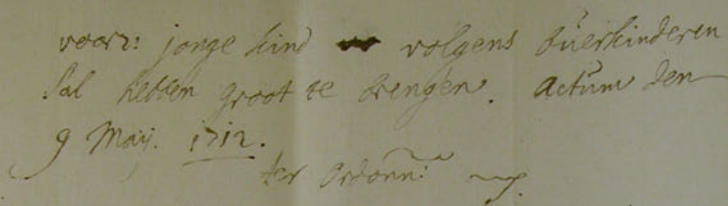 voorz: jonge kind volgens ouerkinderen
Sal hebben groot te brengen. Actum den
9 Maij. 1712.
ter ordonn: